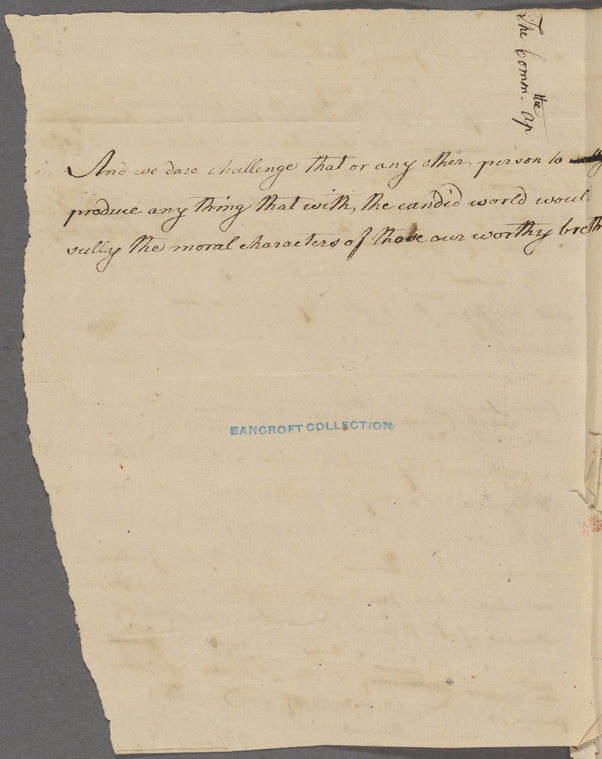 The Comm.ttee Ap
And we dare challenge that or any other person to
produce any thing that with, the candid world would
sully the moral characters of those our worthy breth
BANCROFT COLLECTION